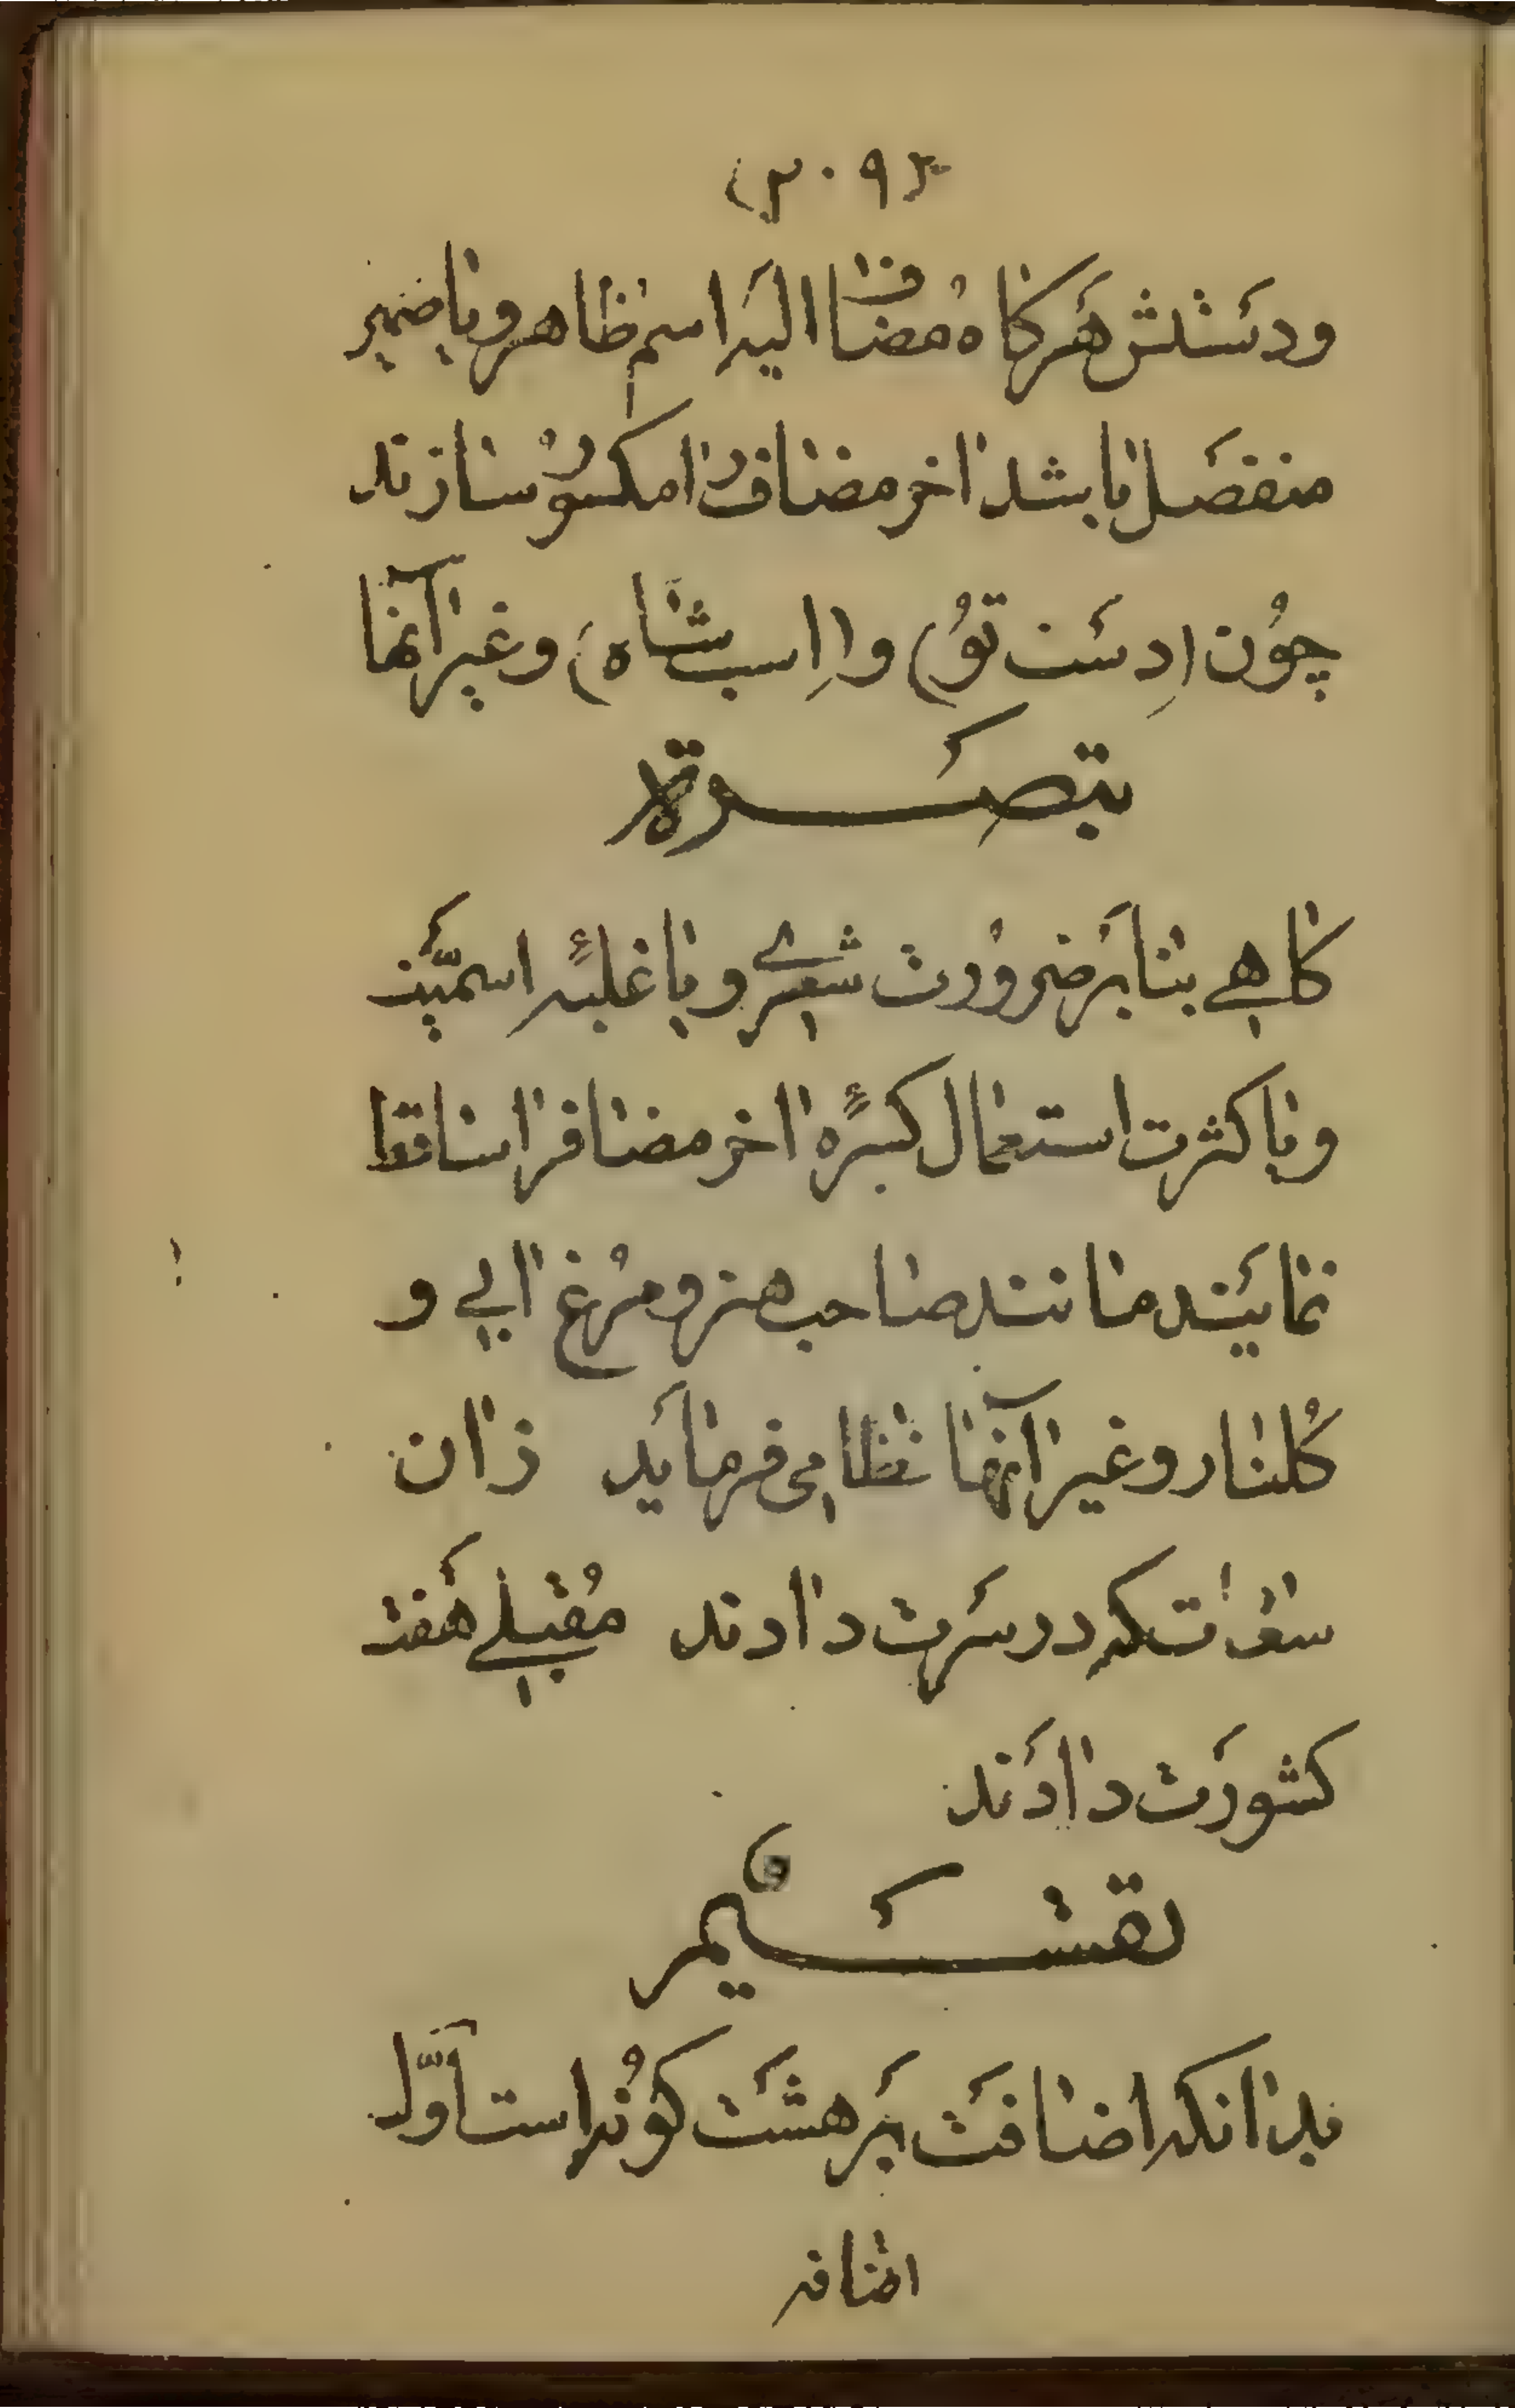 (۲۰۹)
ودستش هرگاه مضاف الیه اسم ظاهر و یا ضمیر
منفصل باشد اخر مضاف را مکسور سازند
چون (دست تو) و (اسب شاه) و غیر آنها
تبصرة
گاهی بنا بر ضرورت شعری و یا غلبۀ اسمیت
و یا کثرت استعمال کسرۀ اخر مضاف را ساقط
نمایند مانند صاحب هنر و مرغابی و
گلنار و غیر آنها نظامی فرماید زان
سعادت که در سرت دادند مقبلی هفت
کشورت دادند
تقسیم
بدانکه اضافت بر هشت گونه است اوّل
اضافه